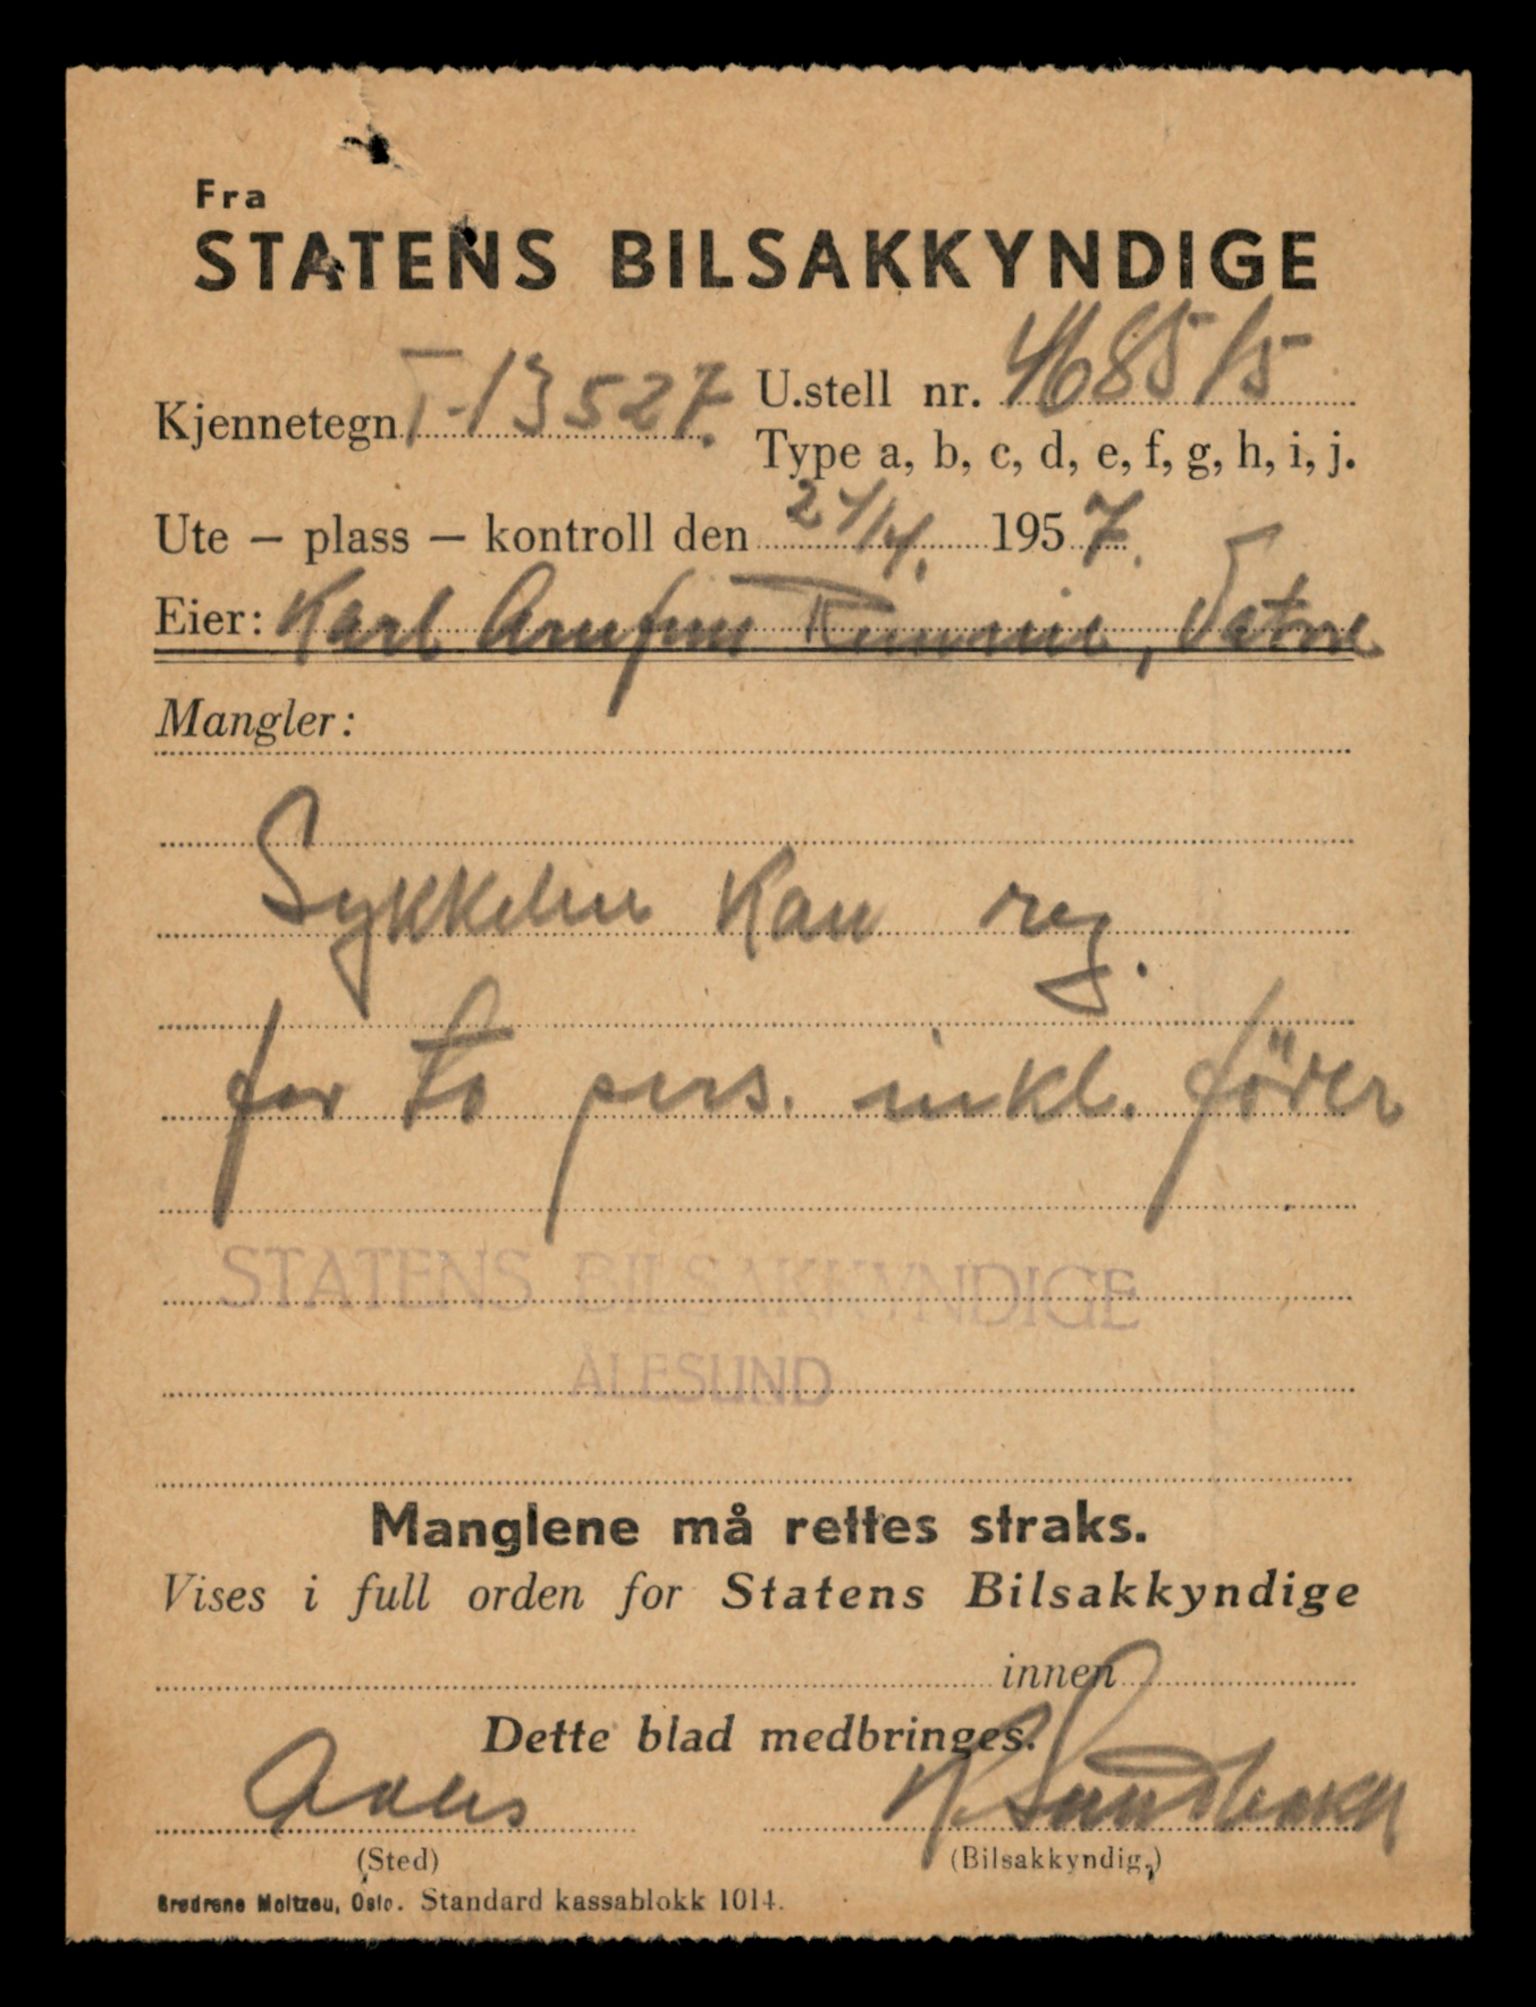 Fra
STATENS BILSAKKYNDIGE
Kjennetegn T-13527. U.stell nr. 4685/5
Type a, b, c, d, e, f, g, h, i, j.
Ute – plass – kontroll den 24/4. 1957.
Eier: Karl, Vatne
Mangler:
Sykkelen kan reg.
for to pers. inkl. förer
STATENS BILSAKKYNDIGE
ÅLESUND
Manglene må rettes straks.
Vises i full orden for Statens Bilsakkyndige
innen
Dette blad medbringes.
(Sted) (Bilsakkyndig.)
Brødrene Moltzau, Oslo. Standard kassablokk 1014.